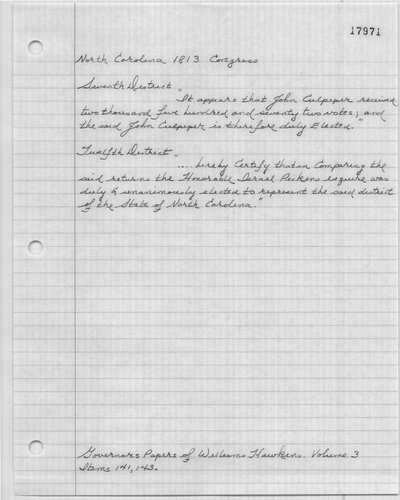 17971
North Carolina 1813 Congress
Seventh District
"It appears that John Culpeper received
two thousand five hundred and seventy two votes; and
the said John Culpeper is therefore duly Elected."
Twelfth District
"....hereby Certify that in Comparing the
said returns the Honorable Israel Pickens esquire was
duly & unanimously elected to represent the said district
of the State of North Carolina."
Governors Papers of Williams Hawkins. Volume 3
Items 141, 143.